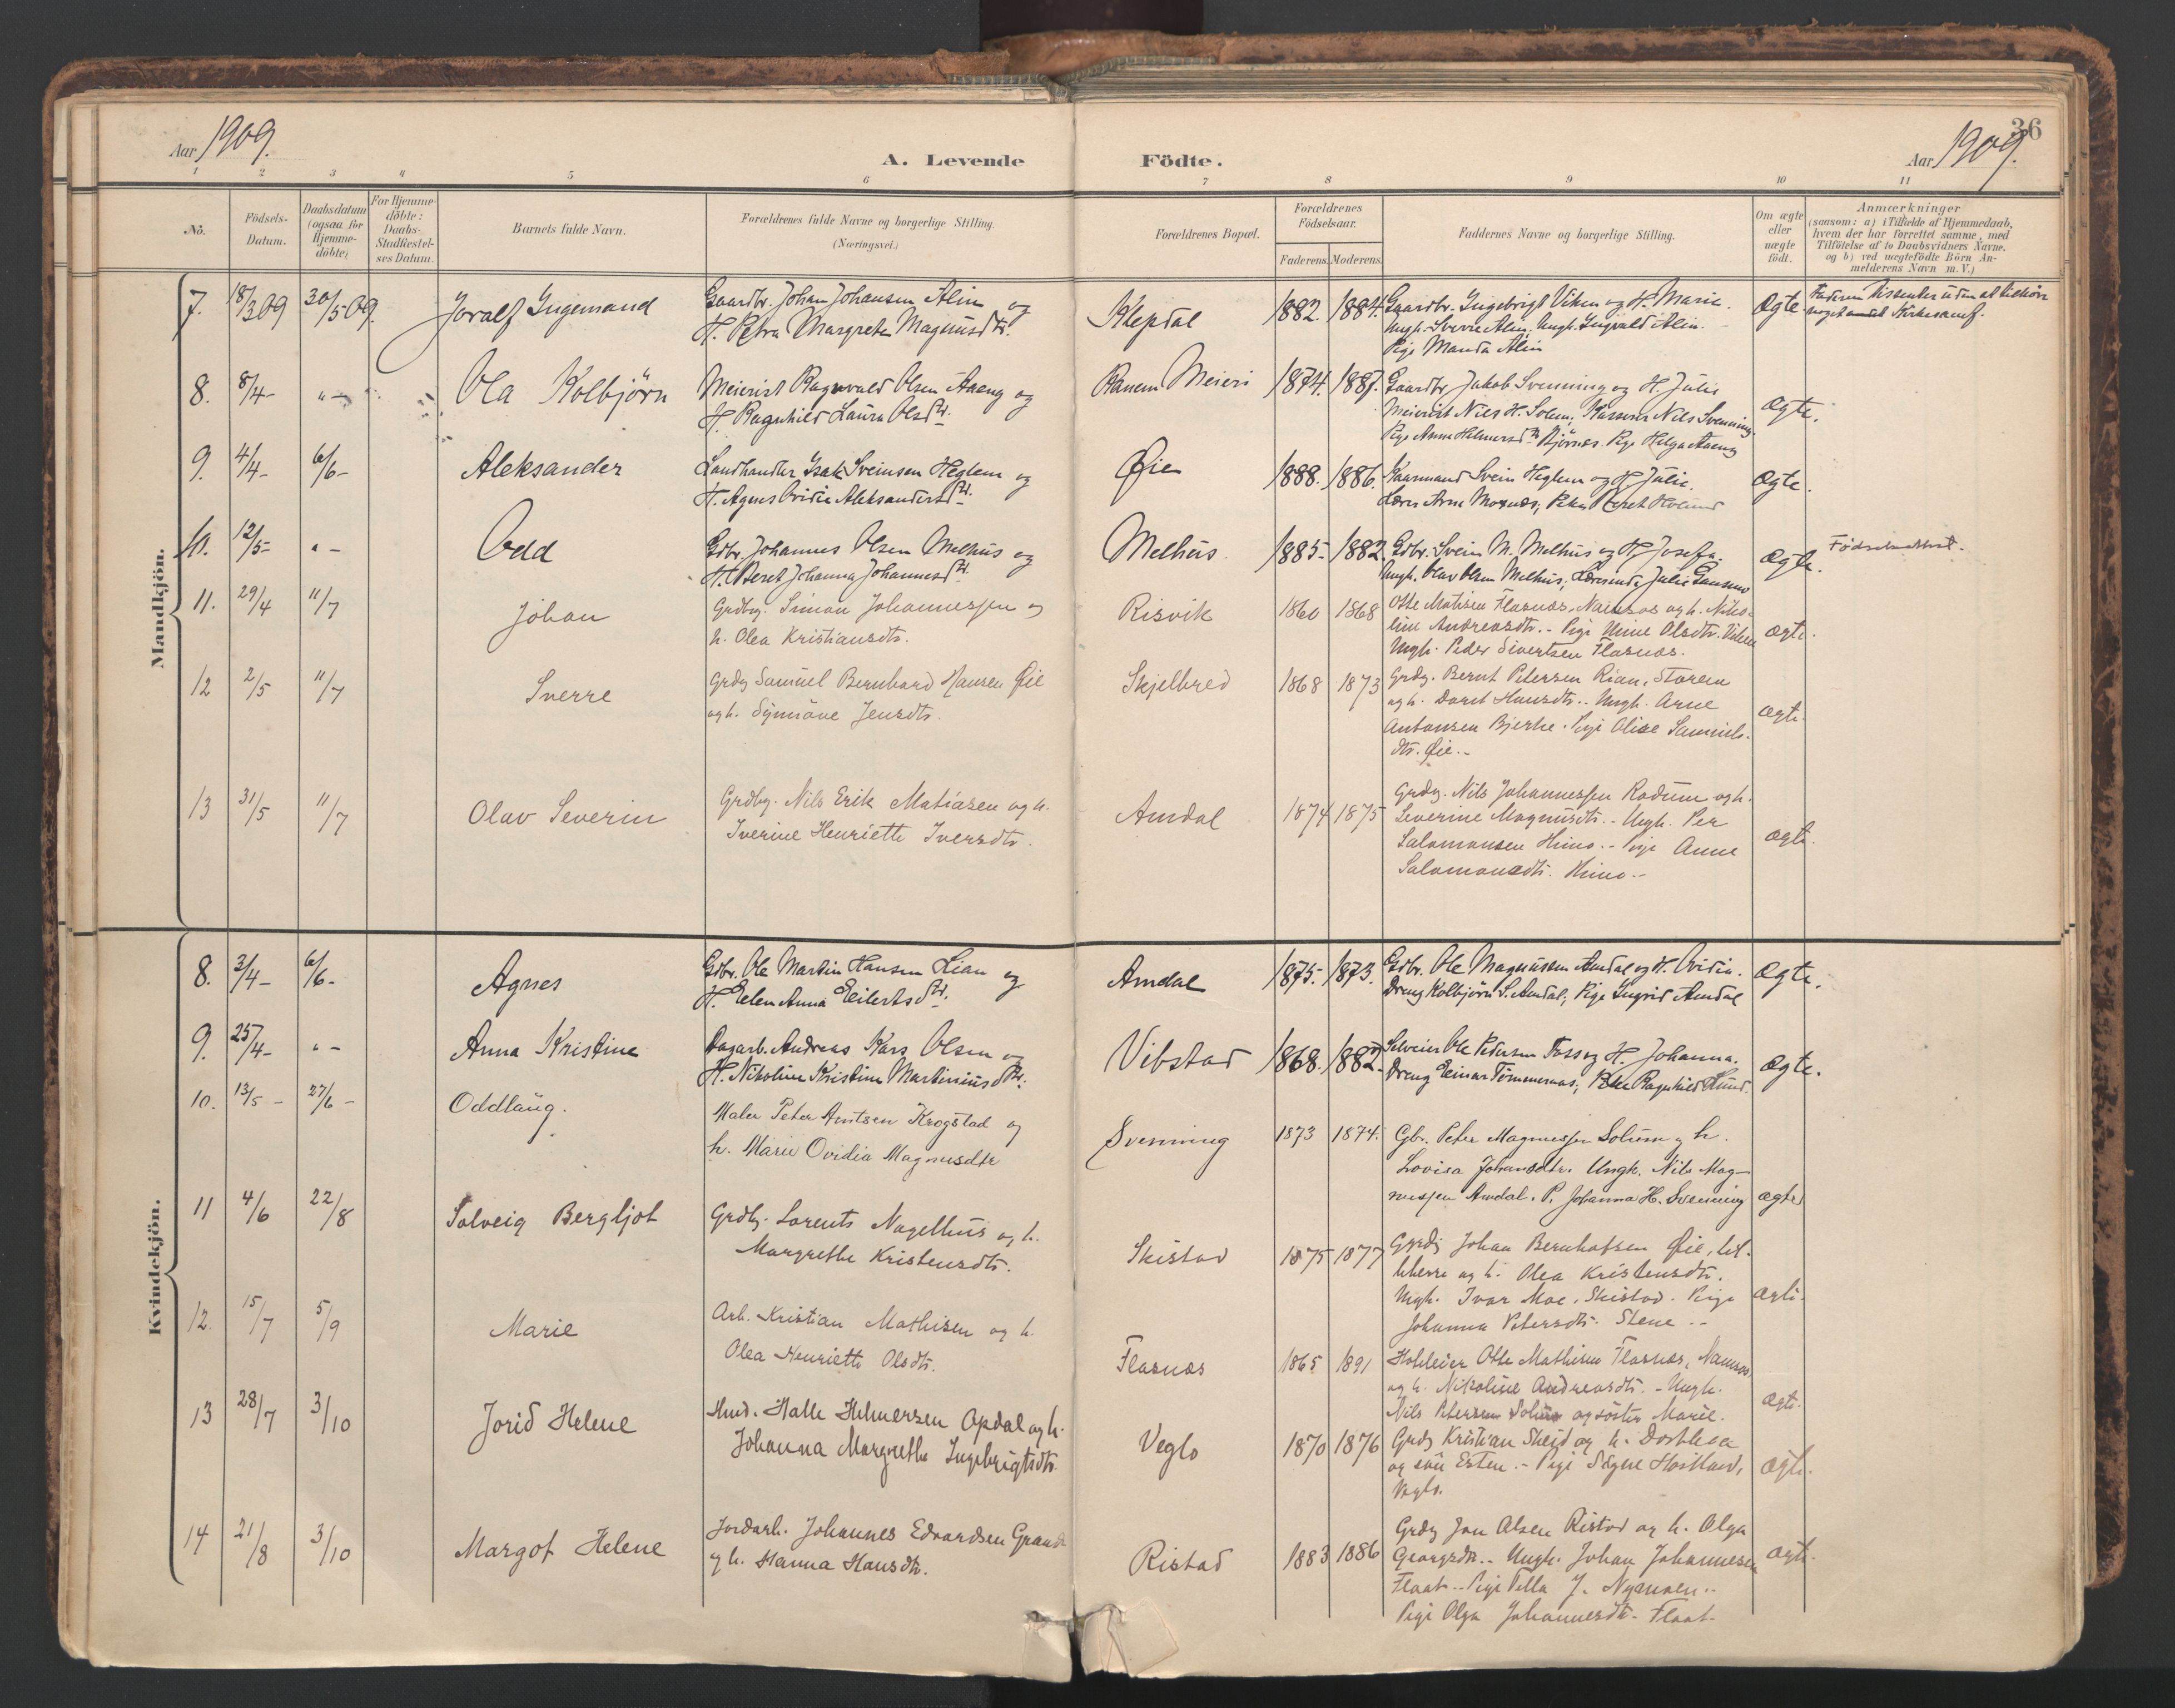 Aar 1909.
A. Levende
Födte.
Aar 1909.
36
1 2 3 4 5 6 7 8 9 10 11
No.
Födsels-
Datum.
Daabsdatum
(ogsaa for
Hjemme-
döbte)
For Hjemme-
döbte:
Daabs-
Stadfæstel-
ses Datum.
Barnets fulde Navn.
Forældrenes fulde Navne og borgerlige Stilling.
(Næringsvei.)
Forældrenes Bopæl.
Forældrenes
Födselsaar.
Faderens. Moderens.
Faddernes Navne og borgerlige Stilling.
Om ægte
eller
uægte
födt.
Anmærkninger
(saasom: a) i Tilfælde af Hjemmedaab,
hvem der har forrettet samme, med
Tilföielse af to Daabsvidners Navne,
og b) ved uægtefödte Börn An-
melderens Navn m. V.)
Mandkjön.
7. 18/3 09 30/5 09. Joralf Ingemand
Gaardbr. Johan Johansen Alin og
H. Petra Margrete Magnusdtr.
Klepdal 1882. 1884.
Gaardbr. Ingebrigt Viken og H. Marie.
Ungk. Sverre Alin, Ungk. Ingvald Alin.
Pige Manda Alin
Ægte.
Faderen Dissenter uden at tilhöre
noget andet Kirkesamf.
8. 8/4 - " - Ola Kolbjörn
Meierist Ragnvald Olsen Aaeng og
H. Ragnhild Laura Olsdtr.
Ranem Meieri 1874. 1887.
Gaardbr. Jakob Svenning og H. Julie
Meierist Nils H. Solem, Kasserer Nils Svenning
Pige Anne Helmersdtr. Bjørnes. Pige Helga Aaeng
Ægte.
9. 4/4 - 6/6 - Aleksander
Landhandler Isak Sveinsen Heglem og
H. Agnes Ovidie Aleksandersdtr.
Øie 1888. 1886.
Kaarmand Svein Heglem og H. Julie.
Lærer Arne Moxnes, Beret
Ægte.
10. 12/5 - " - Odd
Gdbr. Johannes Olsen Melhus og
H. Beret Johanna Johannesdtr.
Melhus 1885. 1882.
Gdbr. Svein M. Melhus og H. Josefa.
Ungk. Olav Olsen Melhus, Lærerinde Julie
Ægte.
Födselsattest.
11. 29/4 11/7 Johan
Grdbg. Simon Johannessen og
h. Olea Kristiansdtr.
Risvik 1860 1868
Otte Matisen Flasnes, Namsos og h. Niko-
line Andreasdtr. - Pige Mine Olsdtr. Viken
Ungk. Peder Sivertsen Flasnes.
ægte.
12 2/5 11/7 Sverre
Grdbg Samuel Bernhard Hansen Øie
og h. Synnöve Jensdtr.
Skjelbred 1868 1873
Grdbg. Bernt Petersen Rian, Støren
og h. Doret Hansdtr. - Ungk. Arne
Antonsen Bjerke. Pige Alise Samuels-
dtr. Øie. -
ægte.
13 31/5 11/7 Olav Severin
Grdbg. Nils Erik Matiasen og h.
Iverine Henriette Iversdtr.
Amdal 1874 1875
Grdbg. Nils Johannessen Rodum og h.
Severine Magnusdtr. - Ungk. Per
Salamonsen Himo. - Pige Anne
Salamonsdtr. Himo. -
ægte.
Kvindekjön.
8. 3/4 - 6/6 - Agnes
Gdbr. Ole Martin Hansen Lian og
H. Elen Anna Eilertsdtr.
Amdal 1875. 1873.
Gdbr. Ole Magnussen Amdal og H. Ovidia.
Dreng Kolbjörn S. Amdal, Pige Ingrid Amdal
Ægte.
9. 25/4 - " - Anna Kristine
Dagarb. Andreas Kars Olsen og
H. Nikoline Kristine Martiniusdtr.
Vibstad 1868. 1882.
Selveier Ole Pedersen Foss og H. Johanna.
Dreng Einar Tömmernes, Ragnhild Lund.
Ægte.
10. 13/5 - 27/6 - Oddlaug.
Maler Peter Arntsen Krogstad og
h. Marie Ovidia Magnusdtr
Svenning 1873 1874.
Gbr. Peter Magnussen Solum og h.
Lovisa Johansdtr. Ungk. Nils Mag-
nussen Amdal. P. Johanna H. Svenning
ægte
11 4/6 22/8 Solveig Bergljot
Grdbg. Lorents Nagelhus og h.
Margrethe Kristensdtr.
Skistad 1875 1877
Grdbg Johan Bernhofsen Øie,
og h. Olea Kristensdtr.
Ungk. Ivar Moe, Skistad. Pige
Johanna Petersdtr. Stene. -
ægte.
12. 15/7 5/9 Marie
Arb. Kristian Mathisen og h.
Olea Henriette Olsdtr.
Flasnes 1865 1891
Otte Mathisen Flasnes, Namsos
og h. Nikoline Andreasdtr. - Ungk.
Nils Petersen Solum og söster Marie.
ægte.
13 28/7 3/10 Jorid Helene
Hmd. Halle Helmersen Opdal og h.
Johanna Margrethe Ingebrigtsdtr.
Veglo 1870 1876
Grdbg Kristian Skeid og h. Dorthea
og sön Esten. - Pige Signe
Veglo.
ægte.
14 21/8 3/10 Margot Helene
Jordarb. Johannes Edvardsen Grande
og h. Hanna Hansdtr.
Ristad 1883 1886
Grdbg Jon Olsen Ristad og h. Olga
Georgsdtr. - Ungk. Johan Johannesen
Flaat. - Pige Pella J. Nymoen. -
Pige Olga Johannesdtr. Flaat.
ægte.